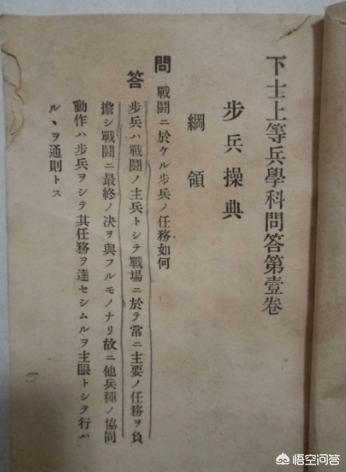 下士上等兵學科問答第壹卷
步兵操典
綱領
問 戰鬪ニ於ケル步兵ノ任務如何
答 步兵ハ戰鬪ノ主兵トシテ戰場ニ於テ常ニ主要ノ任務ヲ負
擔シ戰鬪ニ最終ノ決ヲ與フルモノナリ故ニ他兵種ノ協同
動作ハ步兵ヲシテ其任務ヲ達セシムルヲ主眼トシテ行ハ
ルヽヲ通則トス
悟空问答